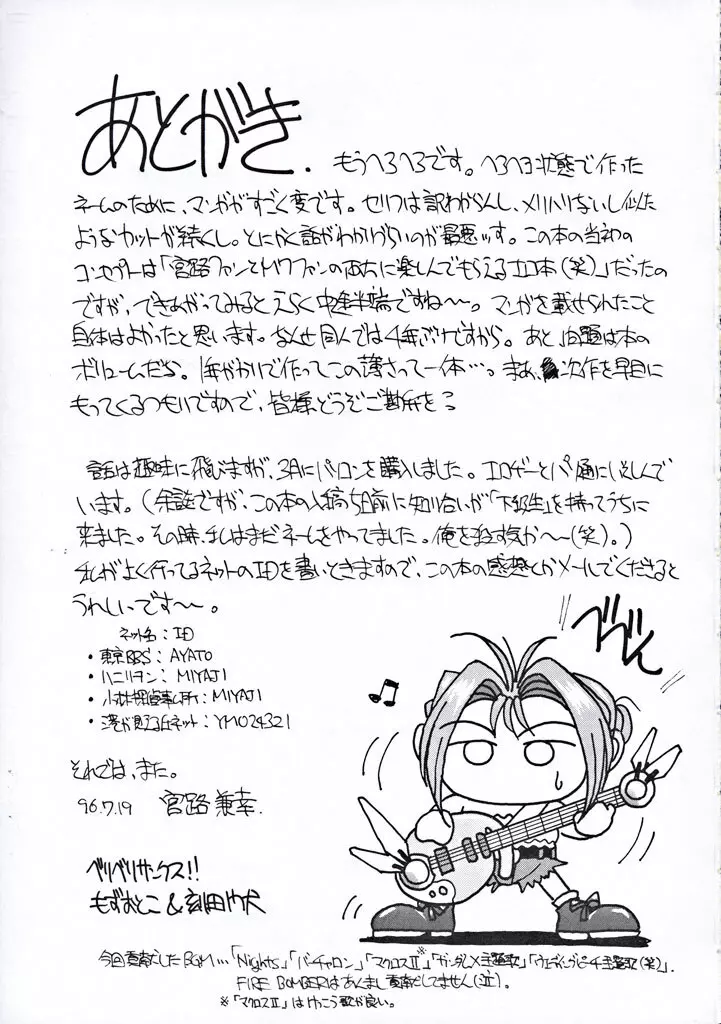 あとがき. もうヘろヘろです。ヘろヘろ状態で作った
ネームのために、マンガがすごく変です。セリフは訳わからんし、メリハリないし似た
ようなカットが続くし。とにかく話がわかりづらいのが最悪ッす。この本の当初の
コンセプトは「宮路ファンと ファンの両方に楽しんでもらえるエロ本(笑)」だったの
ですが、できあがってみるとえらく中途半端ですね〜〜。マンガを載せられたこと
自体はよかったと思います。なんせ同人では4年ぶりですから。あと、問題は本の
ボリュームだな。1年がかりで作ってこの薄さって一体…。まあ、次作を早目に
もってくるつもりですので、皆様どうぞご勘弁を
話は趣味に飛びますが、3月にパソコンを購入しました。エロゲーとパソ通にいそしんで
います。(余談ですが、この本の入稿5日前に知り合いが「下級生」を持ってうちに
来ました。その時、私はまだネームをやってました。俺を殺す気か〜〜(笑)。)
私がよく行ってるネットのIDを書いときますので、この本の感想とかメールでくださると
うれしいです〜〜。
ネット名:ID
・東京BBS:AYATO
・ハニリオン:MIYAJI
・小林探偵事ム所:MIYAJI
・港が見える丘ネット:YMO24321
それでは、また。
96.7.19 宮路兼幸.
ベリベリサンクス!!
もずおとこ&
べべん
♪
今回貢献したBGM…「Nights」「バーチャロン」「マクロスⅡ※」「ガンダムX主題歌」「ウェディングピーチ主題歌(笑)」.
FIRE BOMBERはあんまし貢献してません(泣).
※「マクロスⅡ」はけっこう歌が良い。